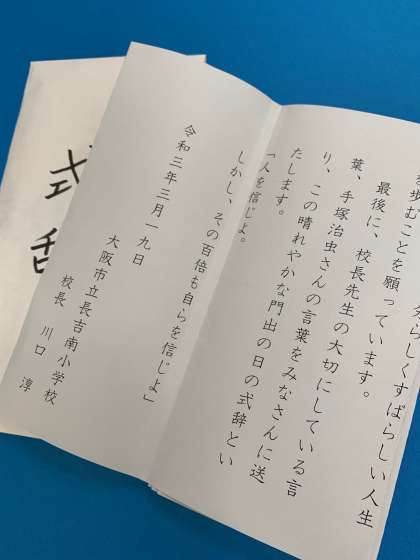 分らしくすばらしい人生
を歩むことを願っています。
最後に、校長先生の大切にしている言
葉、手塚治虫さんの言葉をみなさんに送
り、この晴れやかな門出の日の式辞とい
たします。
「人を信じよ。
しかし、その百倍も自らを信じよ」
令和三年三月一九日
大阪市立長吉南小学校
校長 川口 淳
式